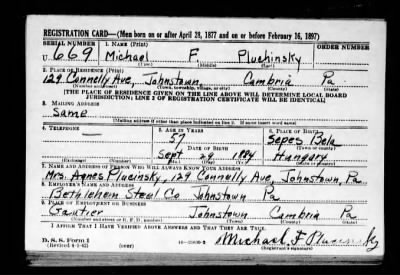 REGISTRATION CARD—(Men born on or after April 28, 1877 and on or before February 16, 1897)
SERIAL NUMBER 1. NAME (Print) ORDER NUMBER
U 669 Michael F Pluchinsky
(First) (Middle) (Last)
2. PLACE OF RESIDENCE (Print)
129 Connelly Ave, Johnstown, Cambria Pa.
(Number and street) (Town, township, village, or city) (County) (State)
[THE PLACE OF RESIDENCE GIVEN ON THE LINE ABOVE WILL DETERMINE LOCAL BOARD
JURISDICTION; LINE 2 OF REGISTRATION CERTIFICATE WILL BE IDENTICAL]
3. MAILING ADDRESS
Same
[Mailing address if other than place indicated on line 2. If same insert word same]
4. TELEPHONE 5. AGE IN YEARS 6. PLACE OF BIRTH
57 Sepes Bela
DATE OF BIRTH (Town or county)
Sept 29 1884 Hungary
(Exchange) (Number) (Mo.) (Day) (Yr.) (State or country)
7. NAME AND ADDRESS OF PERSON WHO WILL ALWAYS KNOW YOUR ADDRESS
Mrs. Agnes Plucinsky, 129 Connelly Ave, Johnstown, Pa
8. EMPLOYER'S NAME AND ADDRESS
Bethlehem Steel Co Johnstown Pa
9. PLACE OF EMPLOYMENT OR BUSINESS
Gautier Johnstown Cambria Pa
(Number and street or R. F. D. number) (Town) (County) (State)
I AFFIRM THAT I HAVE VERIFIED ABOVE ANSWERS AND THAT THEY ARE TRUE.
D. S. S. Form 1
(Revised 4-1-42) (over) Michael F Plucinsky
(Registrant's signature)